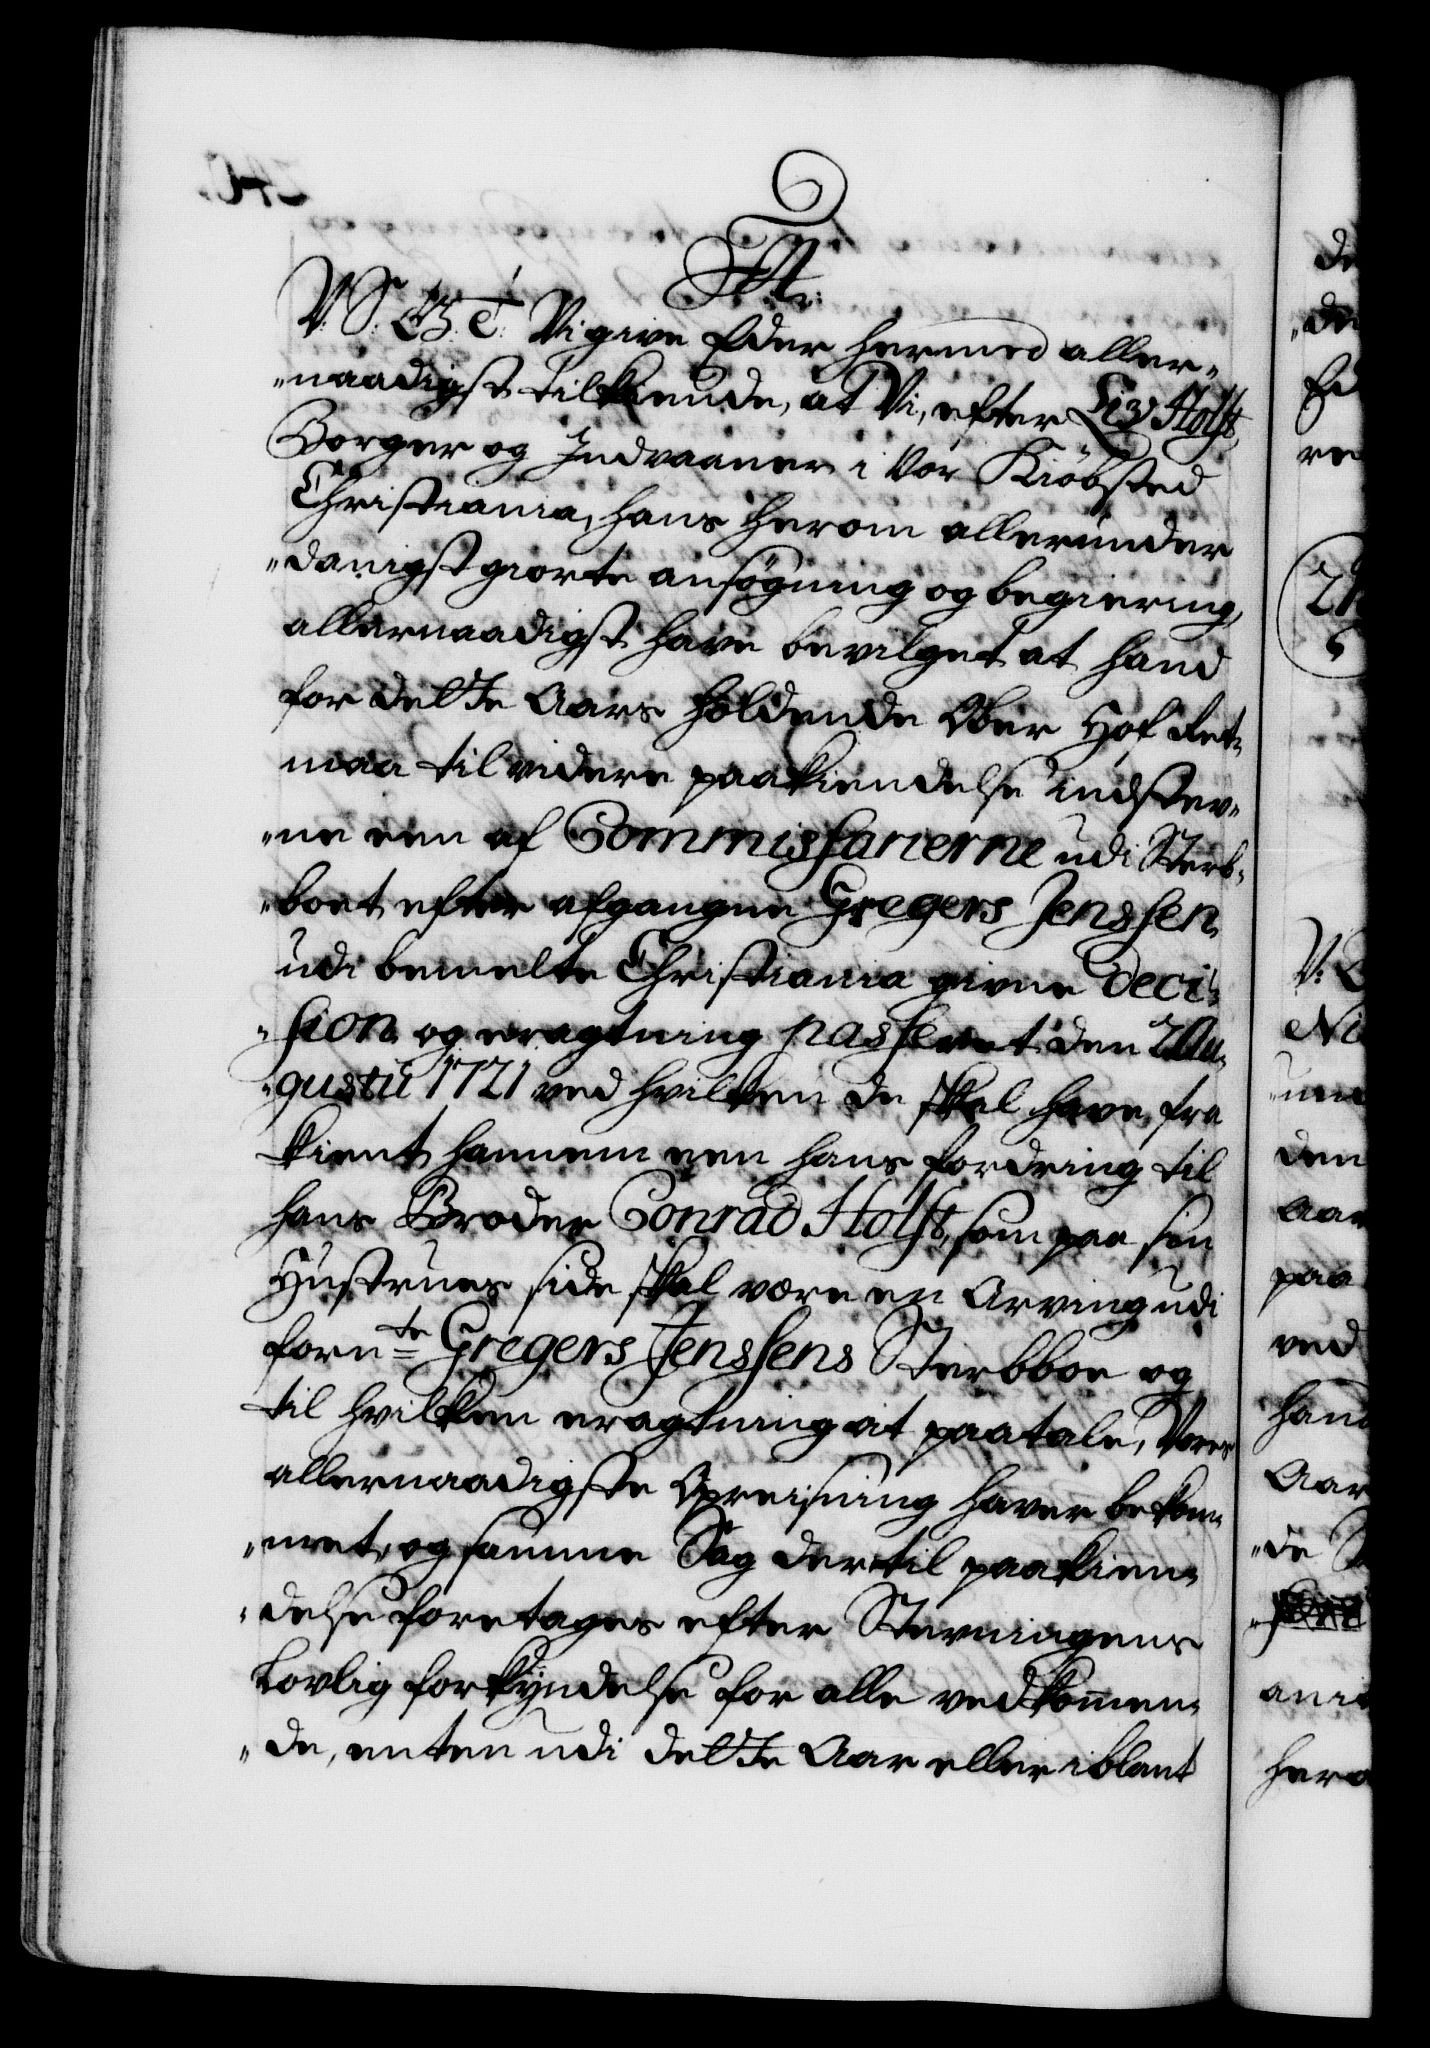 Fr:
V: S: G: T: Vi give Eder hermed aller-
naadigst tilkiende, at Vi, efter Holst,
Borger og Indvaaner i Vor Kiöbsted
Christiania, hans herom allerunder
danigst giorte ansøgning og begiering,
allernaadigst have bevilget at hand
for dette Aars holdende Ober Hof Ret
maa til videre paakiendelse indstev-
ne een af Commissarierne udi Sterb-
boet efter afgangne Gregers Jenssen
udi bemelte Christiania givne Deci-
sion og eragtning passeret den 2 Au-
gustii 1721 ved hvilken de skal have fra
kient hannem een hans fordring til
hans Broder Conrad Holst, som paa sin
Hustrues side skal være en Arving udi
forn:te Gregers Jenssens Sterbboe og
til hvilken eragtning at paatale, Vores
allernaadigste Opreisning haver bekom-
met, og samme Sag der til paakien-
delse foretages efter Stevningens
Lovlig forkyndelse for alle vedkommen-
de, enten udi dette Aar eller iblant